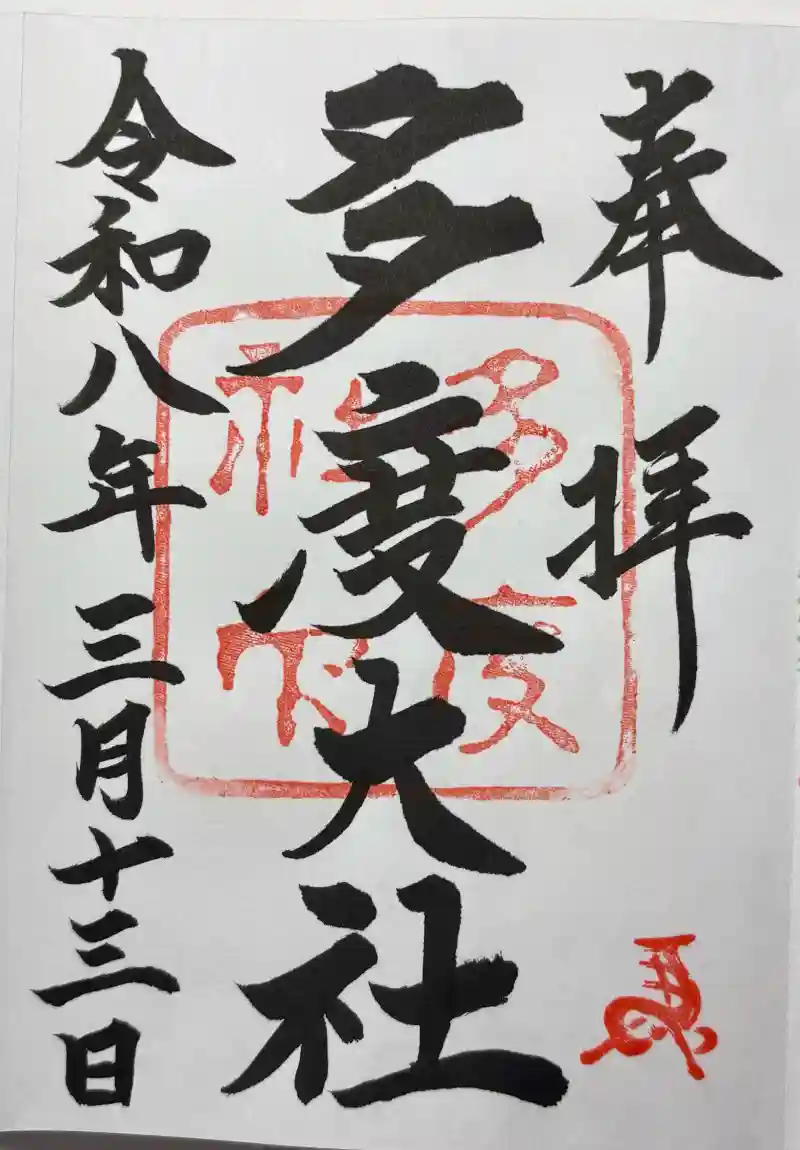 奉拝
多度大社
令和八年三月十三日
多度
社印